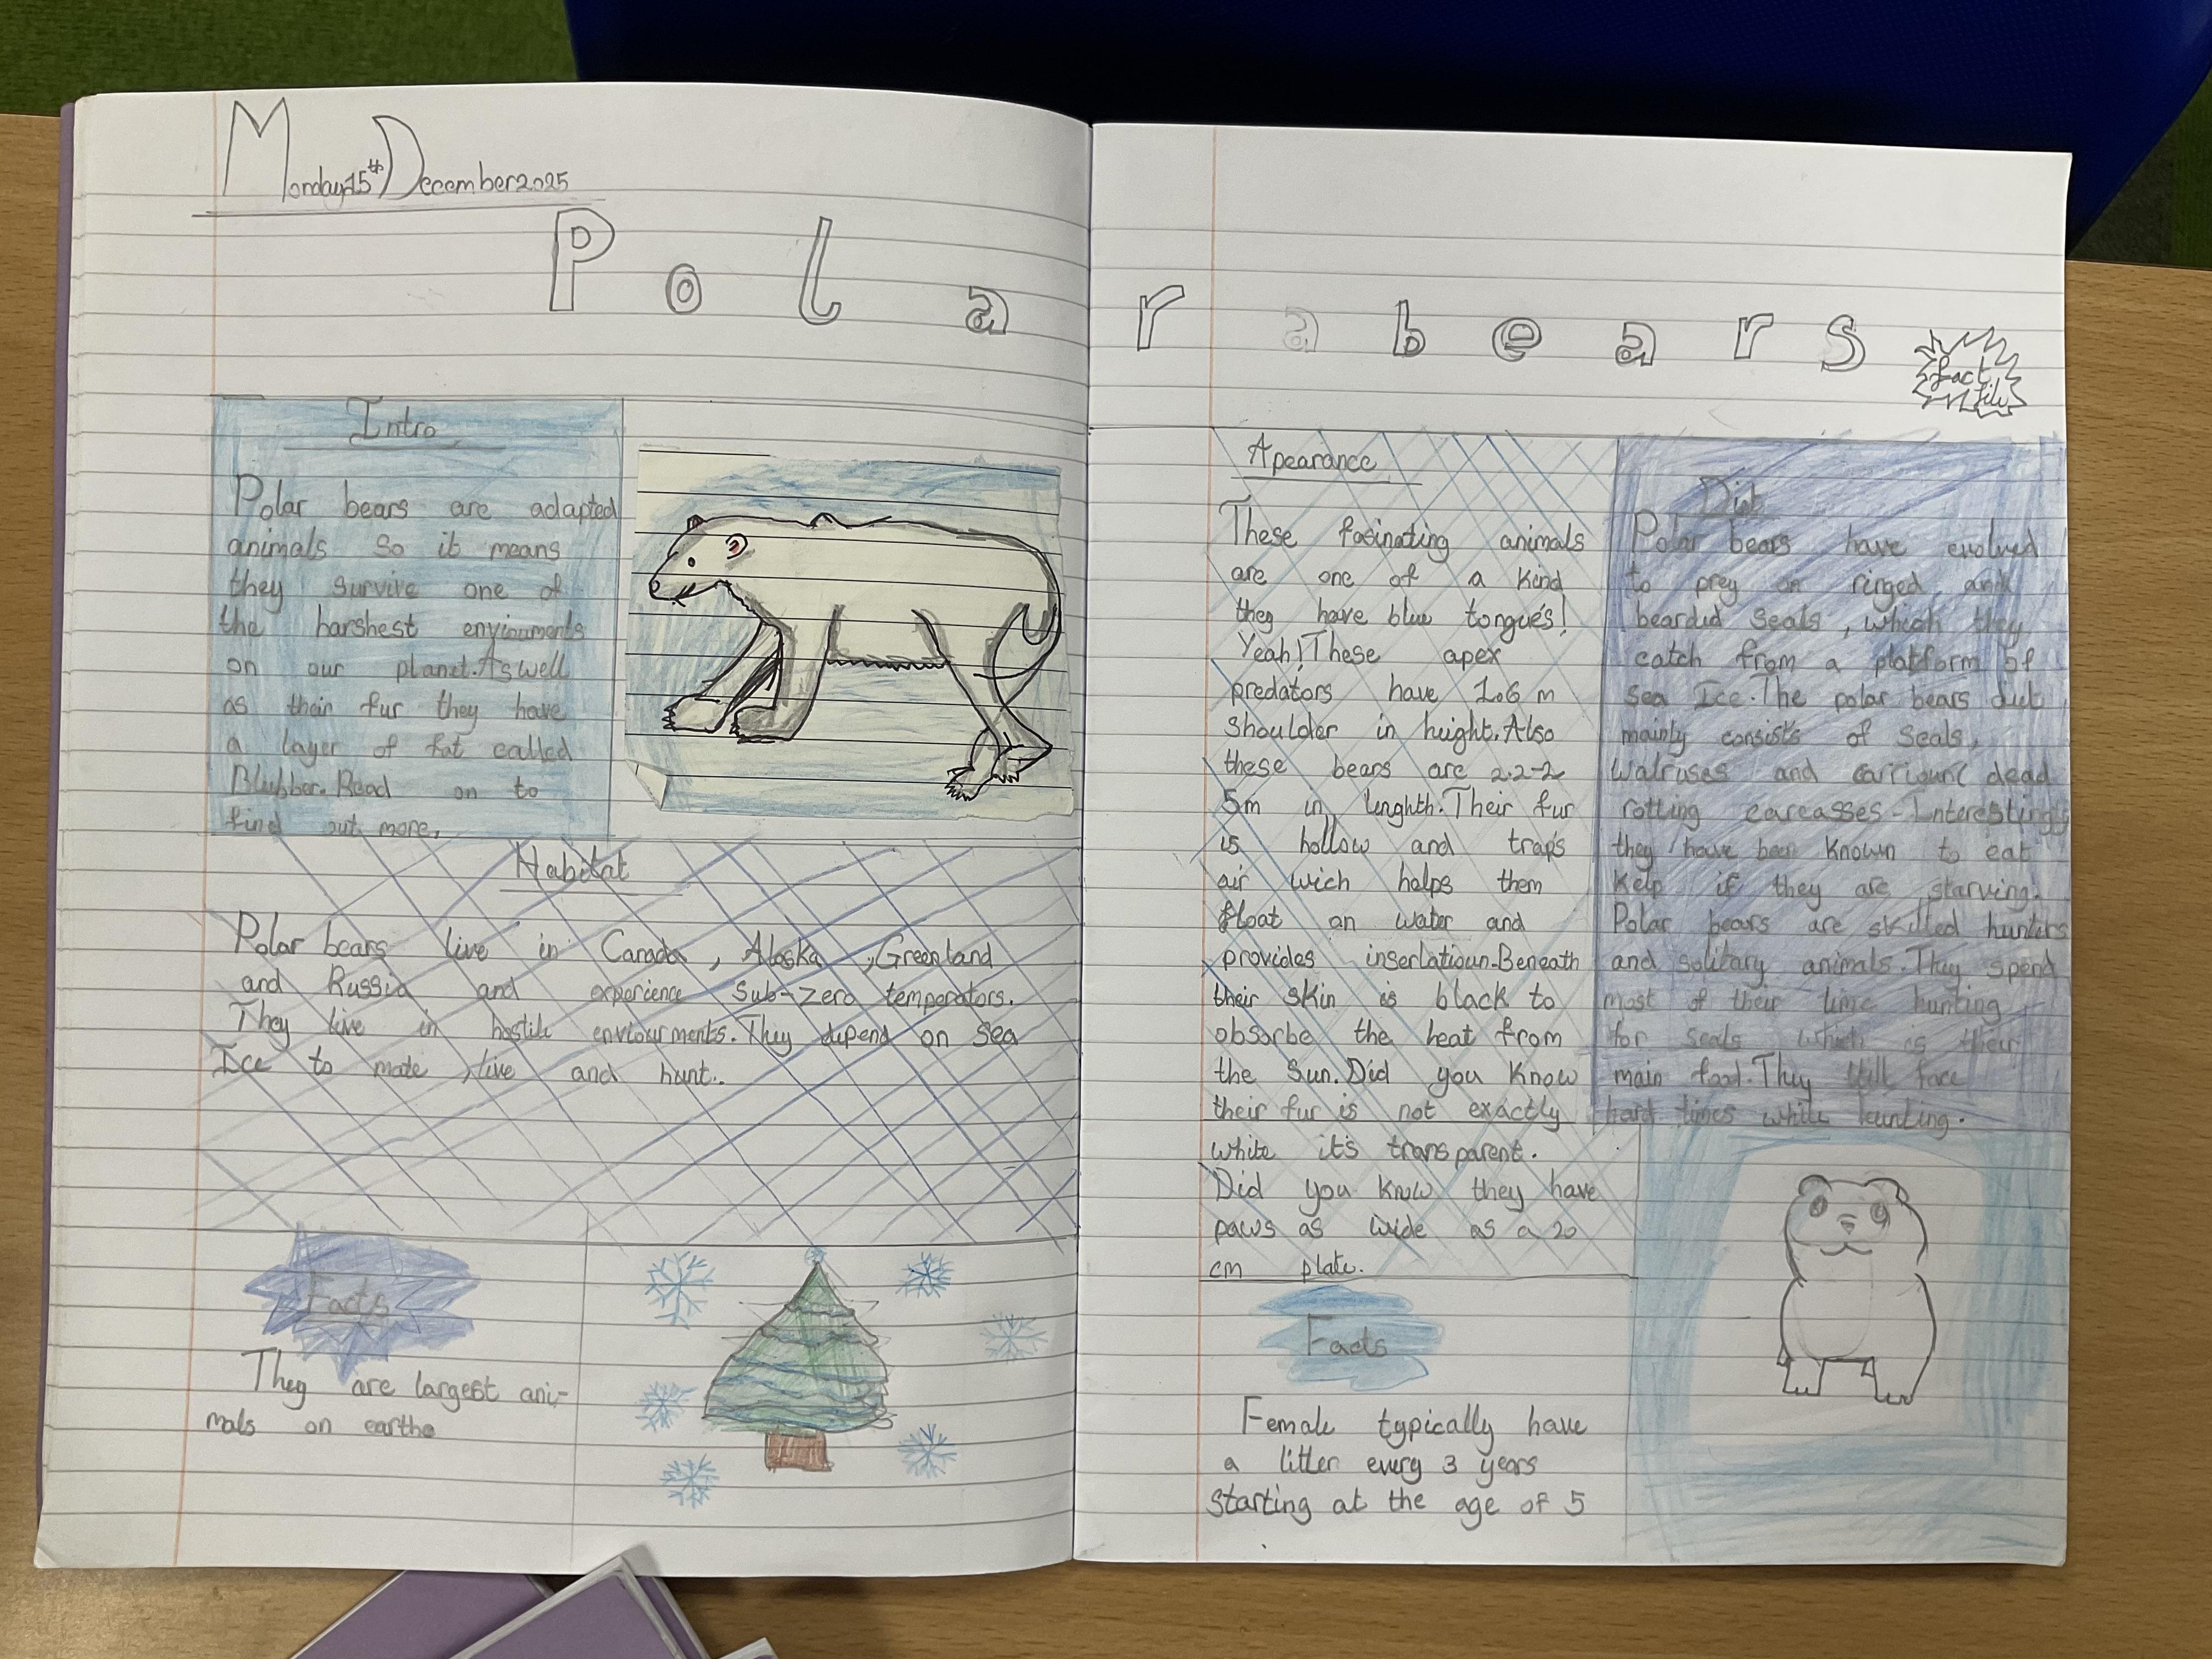 Monday 15th December 2025
Polar bears
fact file
Intro
Polar bears are adapted
animals so it means
they survive one of
the harshest enviouments
on our planet. As well
as their fur they have
a layer of fat called
Blubber. Read on to
find out more.
Habitat
Polar bears live in Canada, Alaska, Greenland
and Russia and experience Sub-zero temperators.
They live in hostile enviourments. They depend on Sea
Ice to mate, live and hunt.
Facts
They are largest ani-
mals on earth.
Apearance
These fasinating animals
are one of a kind
they have blue tongues!
Yeah! These apex
predators have 1.6 m
shoulder in height. Also
these bears are 2.2-2.
5m in lenghth. Their fur
is hollow and traps
air wich helps them
float on water and
provides inserlatioun. Beneath
their skin is black to
obsorbe the heat from
the Sun. Did you know
their fur is not exactly
white it's transparent.
Did you know they have
paws as wide as a 20
cm plate.
Facts
Female typically have
a litter every 3 years
starting at the age of 5
Diet
Polar bears have evolved
to prey on ringed and
bearded Seals, which they
catch from a platform of
sea Ice. The polar bears diet
mainly consists of Seals,
walruses and carrioun( dead
rotting carcasses - Interestingly
they have been known to eat
Kelp if they are starving.
Polar bears are skilled hunters
and solitary animals. They spend
most of their time hunting
for seals which is their
main food. They still face
hard times while hunting.